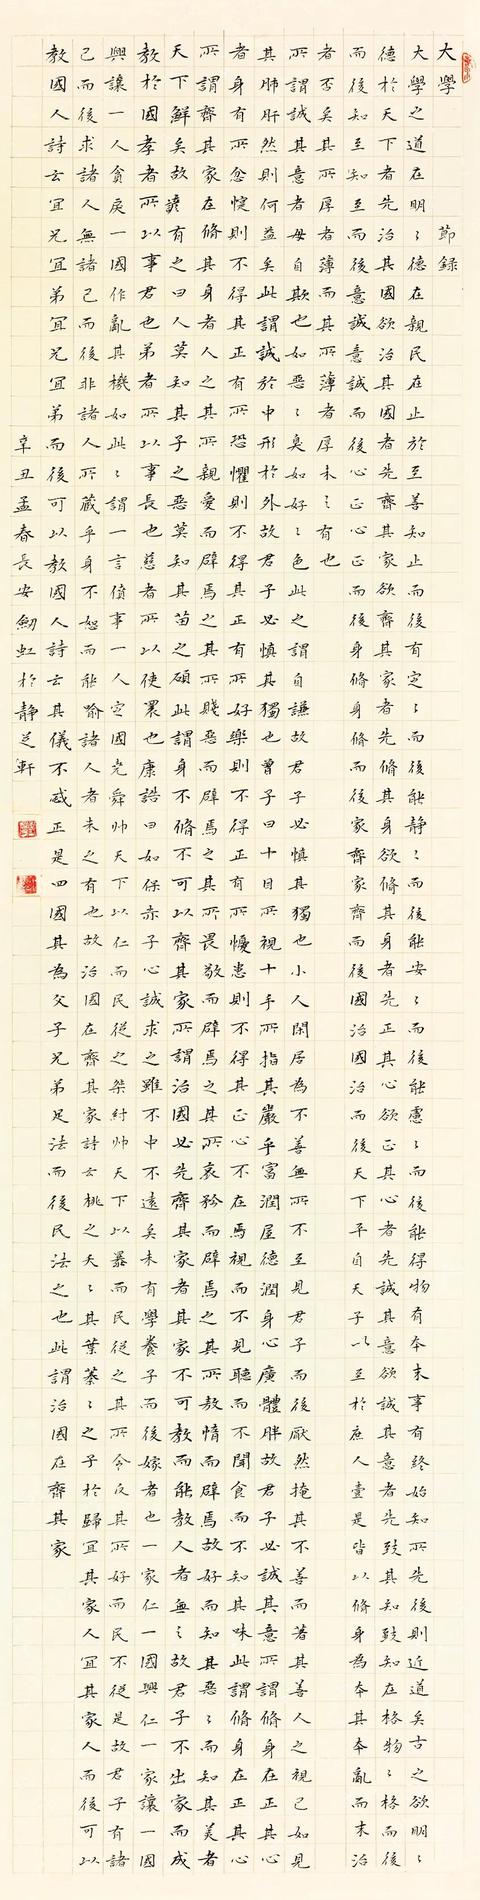 大學 節錄
大學之道在明〻德在親民在止於至善知止而後有定〻而後能静〻而後能安〻而後能慮〻而後能得物有本末事有終始知所先後則近道矣古之欲明〻
德於天下者先治其國欲治其國者先齊其家欲齊其家者先脩其身欲脩其身者先正其心欲正其心者先誠其意欲誠其意者先致其知致知在格物〻格而後
而後知至知至而後意誠意誠而後心正心正而後身脩身脩而後家齊家齊而後國治國治而後天下平自天子以至於庶人壹是皆以脩身為本其本亂而末治
者否矣其所厚者薄而其所薄者厚未之有也
所謂誠其意者毋自欺也如惡〻臭如好〻色此之謂自謙故君子必慎其獨也小人閑居為不善無所不至見君子而後厭然掩其不善而著其善人之視己如見
其肺肝然則何益矣此謂誠於中形於外故君子必慎其獨也曾子曰十目所視十手所指其嚴乎富潤屋德潤身心廣體胖故君子必誠其意所謂脩身在正其心
者身有所忿懥則不得其正有所恐懼則不得其正有所好樂則不得正有所憂患則不得其正心不在焉視而不見聽而不聞食而不知其味此謂脩身在正其心
所謂齊其家在脩其身者人之其所親愛而辟焉之其所賤惡而辟焉之其所畏敬而辟焉之其所哀矜而辟焉之其所敖惰而辟焉故好而知其惡〻而知其美者
天下鮮矣故諺有之曰人莫知其子之惡莫知其苗之碩此謂身不脩不可以齊其家所謂治國必先齊其家者其家不可教而能教人者無之故君子不出家而成
教於國孝者所以事君也弟者所以事長也慈者所以使眾也康誥曰如保赤子心誠求之雖不中不遠矣未有學養子而後嫁者也一家仁一國興仁一家讓一國
興讓一人貪戾一國作亂其機如此〻謂一言僨事一人定國堯舜帥天下以仁而民從之桀紂帥天下以暴而民從之其所令反其所好而民不從是故君子有諸
己而後求諸人無諸己而後非諸人所藏乎身不恕而能喻諸人者未之有也故治國在齊其家詩云桃之夭〻其葉蓁〻之子於歸宜其家人宜其家人而後可以
教國人詩云宜兄宜弟宜兄宜弟而後可以教國人詩云其儀不忒正是四國其為父子兄弟足法而後民法之也此謂治國在齊其家
辛丑孟春長安劒虹於静芝軒